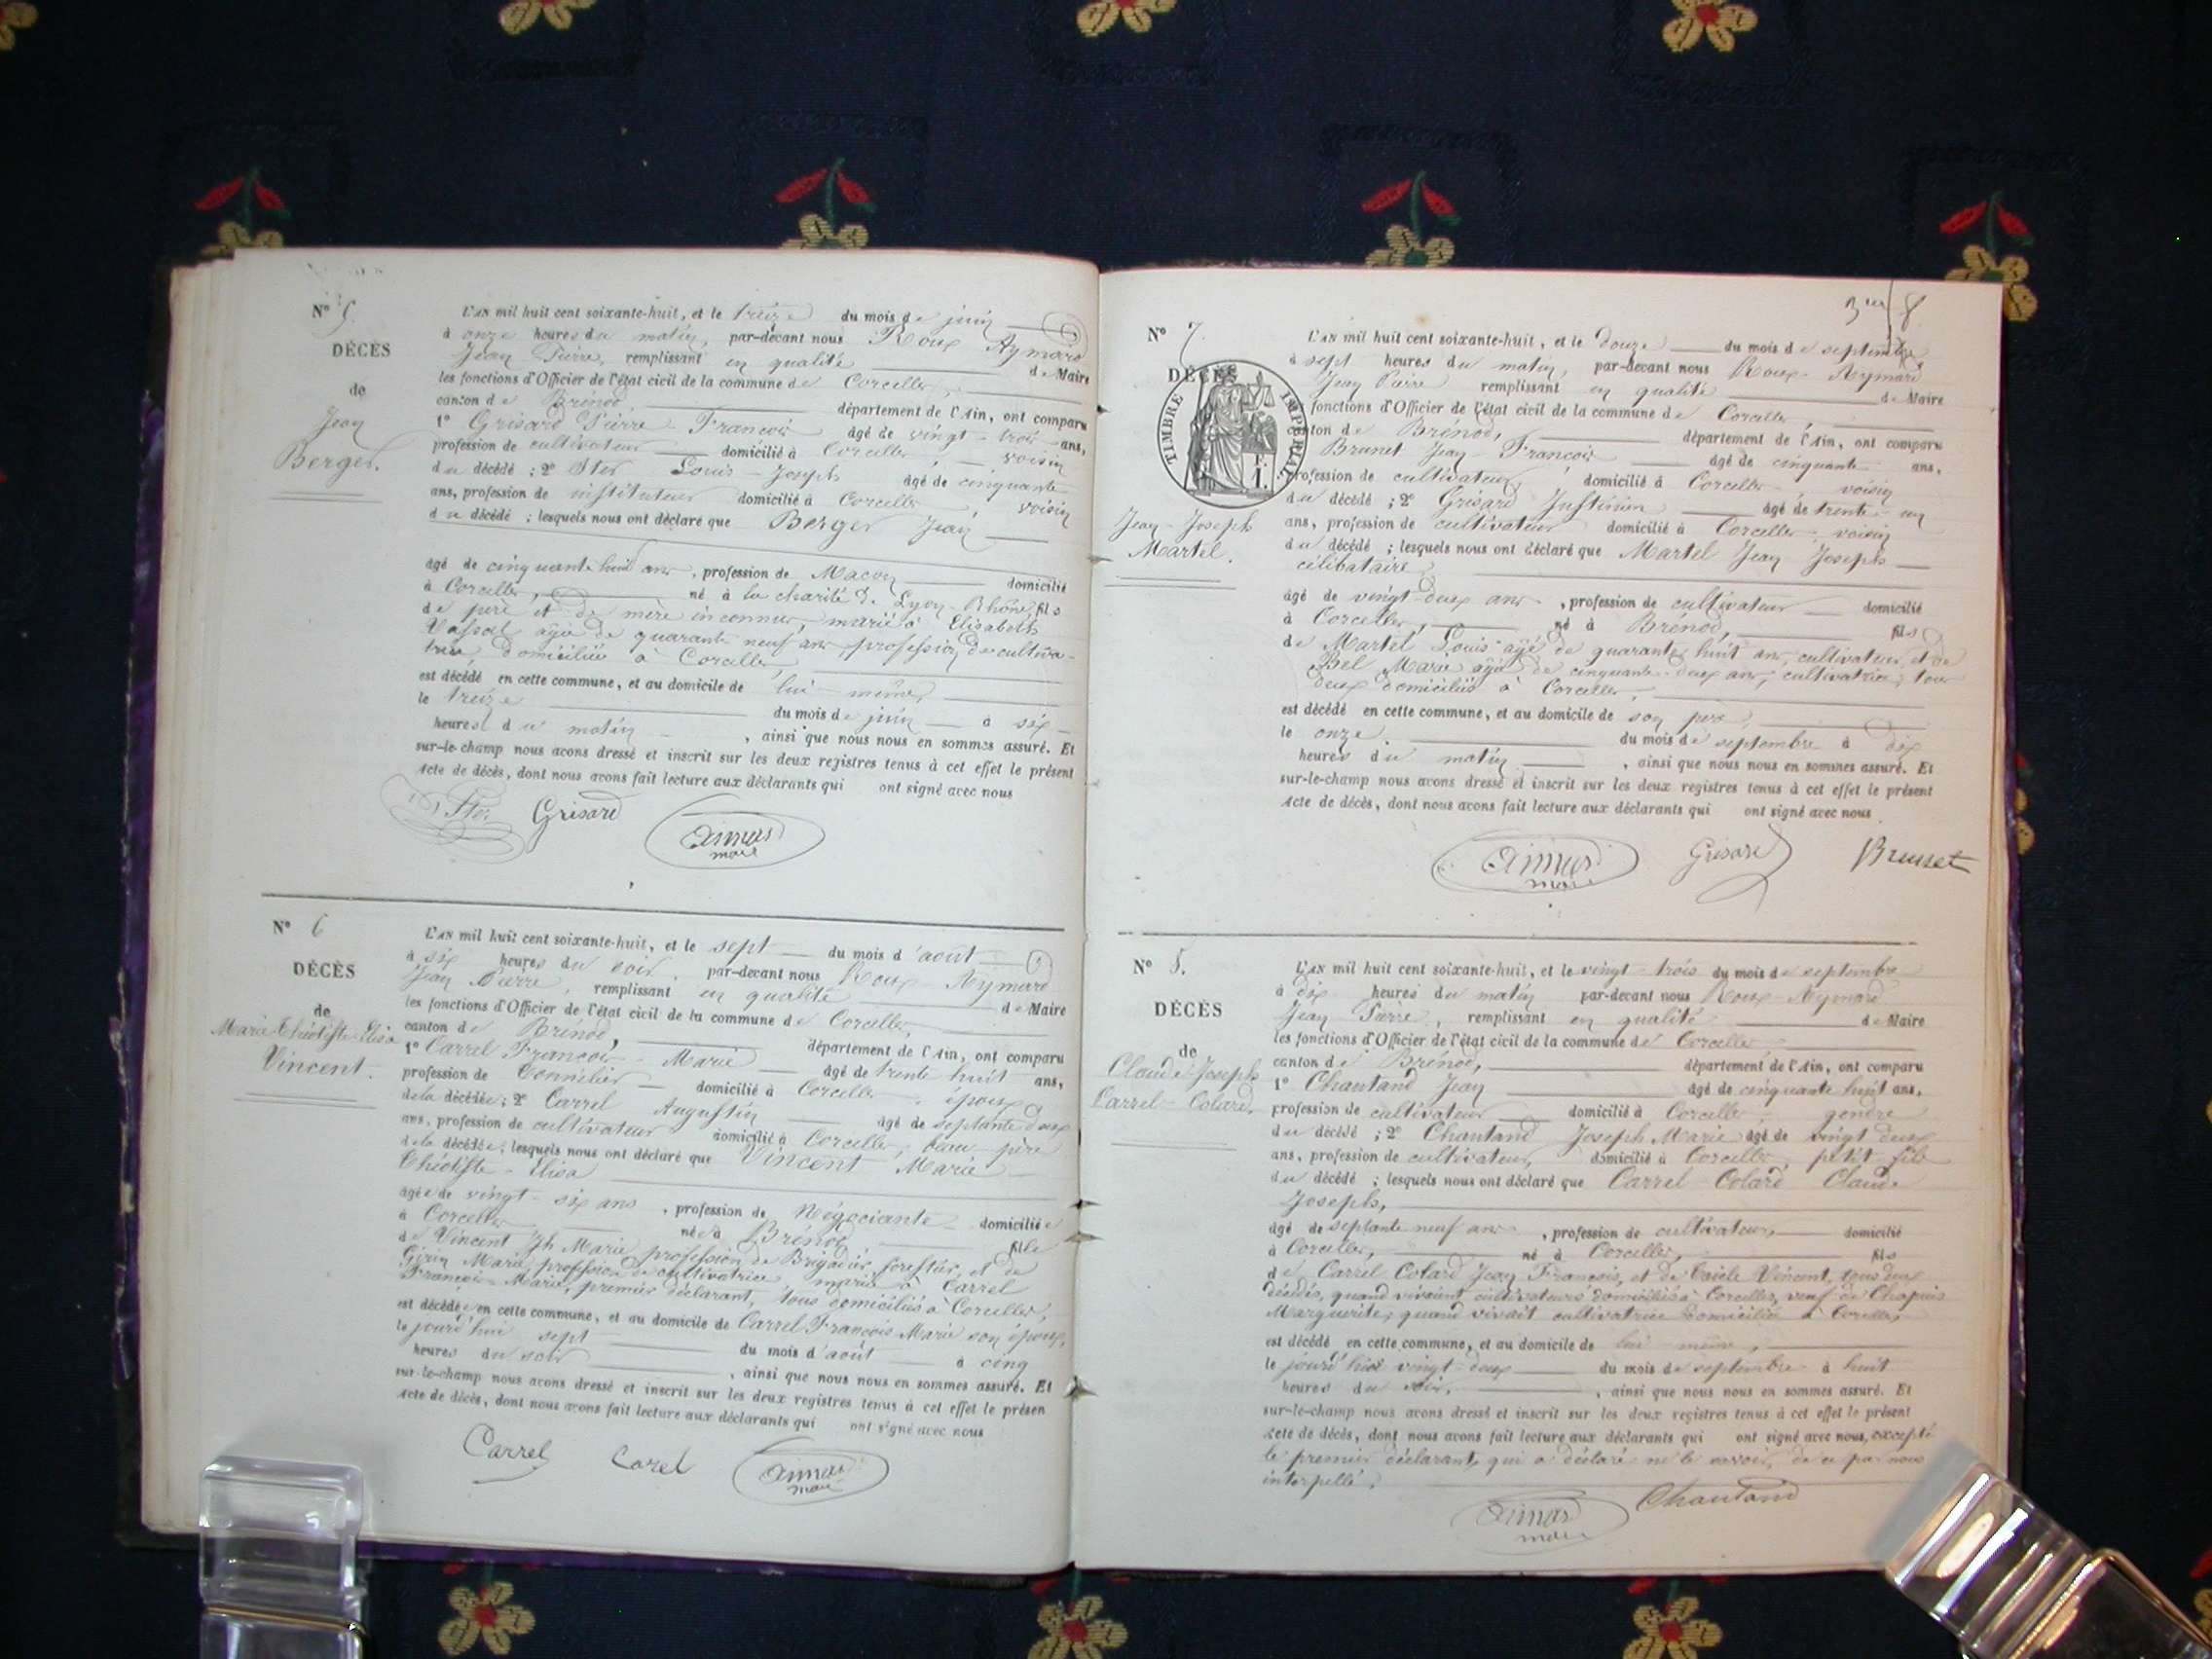 N° 5.
DÉCÈS
de
Jean
Berger.
L'AN mil huit cent soixante-huit, et le treize du mois de juin
à onze heures du matin, par-devant nous Roux Aymard
Jean Pierre, remplissant en qualité de Maire
les fonctions d'Officier de l'état civil de la commune de Corcelles,
canton de Brénod, département de l'Ain, ont comparu
1° Grisard Pierre François âgé de vingt-trois ans,
profession de cultivateur domicilié à Corcelles, voisin
du décédé ; 2° Louis-Joseph âgé de cinquante
ans, profession de instituteur domicilié à Corcelles, voisin
du décédé ; lesquels nous ont déclaré que Berger Jean
âgé de cinquante huit ans, profession de Maçon domicilié
à Corcelles, né à la charité de Lyon-Rhône, fils
de père et de mère inconnus, marié à Elisabeth
âgée de quarante neuf ans profession de cultiva-
trice, domiciliée à Corcelles,
est décédé en cette commune, et au domicile de lui-même,
le treize du mois de juin à six
heures du matin, ainsi que nous nous en sommes assuré. Et
sur-le-champ nous avons dressé et inscrit sur les deux registres tenus à cet effet le présent
Acte de décès, dont nous avons fait lecture aux déclarants qui ont signé avec nous
Grisard
maire
N° 6
DÉCÈS
de
Marie-Théotiste-Elisa
Vincent.
L'AN mil huit cent soixante-huit, et le sept du mois d'août
à six heures du soir, par-devant nous Roux-Aymard
Jean Pierre, remplissant en qualité de Maire
les fonctions d'Officier de l'état civil de la commune de Corcelles,
canton de Brénod, département de l'Ain, ont comparu
1° Carrel François-Marie âgé de trente huit ans,
profession de Tonnelier domicilié à Corcelles, époux
de la décédée ; 2° Carrel Augustin âgé de septante deux
ans, profession de cultivateur domicilié à Corcelles, beau père
de la décédée ; lesquels nous ont déclaré que Vincent Marie
Théotiste-Elisa
âgée de vingt-six ans, profession de Négociante domiciliée
à Corcelles née à Brénod fille
de Vincent Jh Marie, profession de Brigadier forestier, et de
Girin Marie, profession de cultivatrice, mariée à Carrel
François-Marie, premier déclarant, tous domiciliés à Corcelles,
est décédée en cette commune, et au domicile de Carrel François Marie son époux,
le jourd'hui sept du mois d'août à cinq
heures du soir, ainsi que nous nous en sommes assuré. Et
sur-le-champ nous avons dressé et inscrit sur les deux registres tenus à cet effet le présen
Acte de décès, dont nous avons fait lecture aux déclarants qui ont signé avec nous
Carrel Carel
maire
8
N° 7.
DÉCÈS
TIMBRE IMPERIAL
Jean-Joseph
Martel.
L'AN mil huit cent soixante-huit, et le douze du mois de septembre
à sept heures du matin, par-devant nous Roux-Aymard
Jean Pierre remplissant en qualité de Maire
fonctions d'Officier de l'état civil de la commune de Corcelles,
canton de Brénod, département de l'Ain, ont comparu
Brunet Jean-François âgé de cinquante ans,
profession de cultivateur, domicilié à Corcelles, voisin
du décédé ; 2° Grisard Justinien âgé de trente-un
ans, profession de cultivateur domicilié à Corcelles, voisin
du décédé ; lesquels nous ont déclaré que Martel Jean Joseph
célibataire,
âgé de vingt-deux ans, profession de cultivateur domicilié
à Corcelles, né à Brénod, fils
de Martel Louis âgé de quarante huit ans, cultivateur, et de
Bel Marie âgée de cinquante-deux ans, cultivatrice, tous
deux domiciliés à Corcelles,
est décédé en cette commune, et au domicile de son père,
le onze du mois de septembre à dix
heures du matin, ainsi que nous nous en sommes assuré. Et
sur-le-champ nous avons dressé et inscrit sur les deux registres tenus à cet effet le présent
Acte de décès, dont nous avons fait lecture aux déclarants qui ont signé avec nous
maire Grisard Brunet
N° 8.
DÉCÈS
de
Claude-Joseph
Carrel-Colard.
L'AN mil huit cent soixante-huit, et le vingt-trois du mois de septembre
à dix heures du matin par-devant nous Roux-Aymard
Jean Pierre, remplissant en qualité de Maire
les fonctions d'Officier de l'état civil de la commune de Corcelles
canton de Brénod, département de l'Ain, ont comparu
1° Chantand Jean âgé de cinquante huit ans,
profession de cultivateur domicilié à Corcelles gendre
du décédé ; 2° Chantand Joseph Marie âgé de vingt deux
ans, profession de cultivateur, domicilié à Corcelles, petit-fils
du décédé ; lesquels nous ont déclaré que Carrel-Colard Claude
Joseph,
âgé de septante neuf ans, profession de cultivateur, domicilié
à Corcelles, né à Corcelles, fils
de Carrel Colard Jean François, et de Vincent, tous deux
décédés, quand vivaient cultivateurs domiciliés à Corcelles, veuf de Chapuis
Marguerite, quand vivait cultivatrice domiciliée à Corcelles,
est décédé en cette commune, et au domicile de lui-même,
le jourd'hier vingt-deux du mois de septembre à huit
heures du soir, ainsi que nous nous en sommes assuré. Et
sur-le-champ nous avons dressé et inscrit sur les deux registres tenus à cet effet le présent
Acte de décès, dont nous avons fait lecture aux déclarants qui ont signé avec nous, excepté
le premier déclarant, qui a déclaré ne le savoir, de ce par nous
interpellé.
maire Chantand